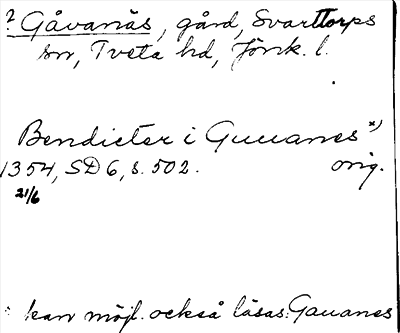 ? Gåvanäs, gård, Svarttorps
sn, Tveta hd, Jönk. l.
Bendicter i Guuanes x)
1354, SD 6, s. 502. orig.
21/6
x kan möjl. också läsas: Gauanes